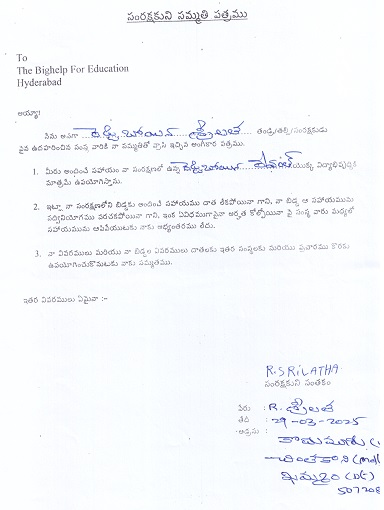 సంరక్షకుని సమ్మతి పత్రము
To
The Bighelp For Education
Hyderabad
అయ్యా!
నేను అనగా ... శ్రీలత తండ్రి/తల్లి/సంరక్షకుడు
పైన ఉదహరించిన సంస్థ వారికి నా సమ్మతితో వ్రాసి ఇచ్చిన అంగీకార పత్రము.
1. మీరు అందించే సహాయం నా సంరక్షణలో ఉన్న యొక్క విద్యాభివృద్ధికి
మాత్రమే ఉపయోగిస్తాను.
2. ఇట్లా నా సంరక్షణలోని బిడ్డకు అందించే సహాయము దాత లేకపోయినా గాని, నా బిడ్డ ఆ సహాయమును
సద్వినియోగము పరచకపోయినా గాని, ఇంక ఏవిధముగానైనా అర్హత కోల్పోయినా పై సంస్థ వారు మధ్యలో
సహాయమును ఆపివేయుటకు నాకు అభ్యంతరము లేదు.
3. నా వివరములు మరియు నా బిడ్డల వివరములు దాతలకు ఇతర సంస్థలకు మరియు ప్రచారము కొరకు
ఉపయోగించుకొనుటకు నాకు సమ్మతము.
ఇతర వివరములు ఏమైనా :-
R.SRILATHA
సంరక్షకుని సంతకం
పేరు : R. శ్రీలత
తేదీ : 29-03-2025
అడ్రసు :
చింతకాని (md
ఖమ్మం (Dt)
507208